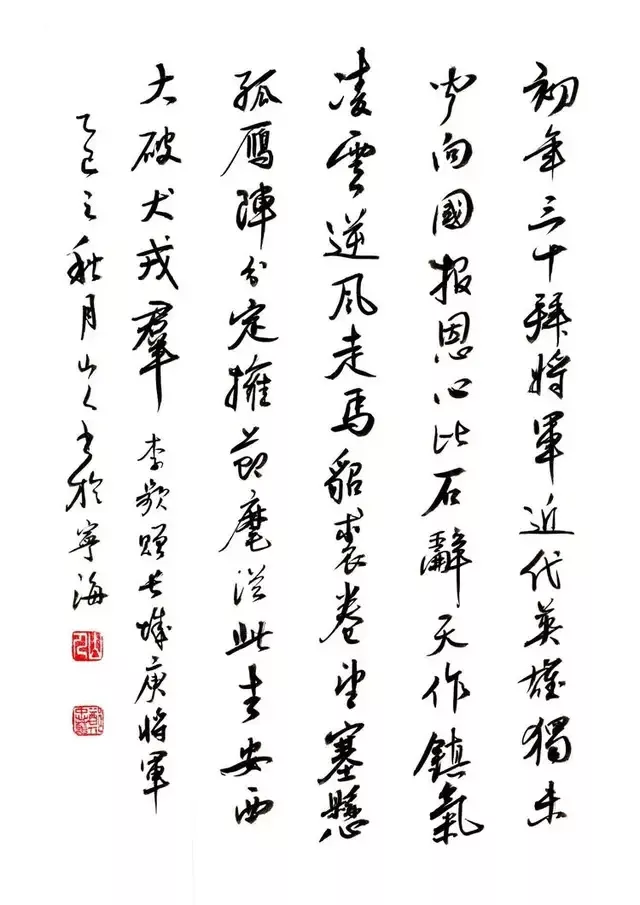 初年三十拜將軍近代英雄獨未
聞向國報恩心比石辭天作鎮氣
凌雲逆風走馬貂裘卷望塞懸
孤鴈陣分定擁節麾從此去安西
大破犬戎羣 李頻贈長城庾將軍
乙巳之秋月山人書於寧海